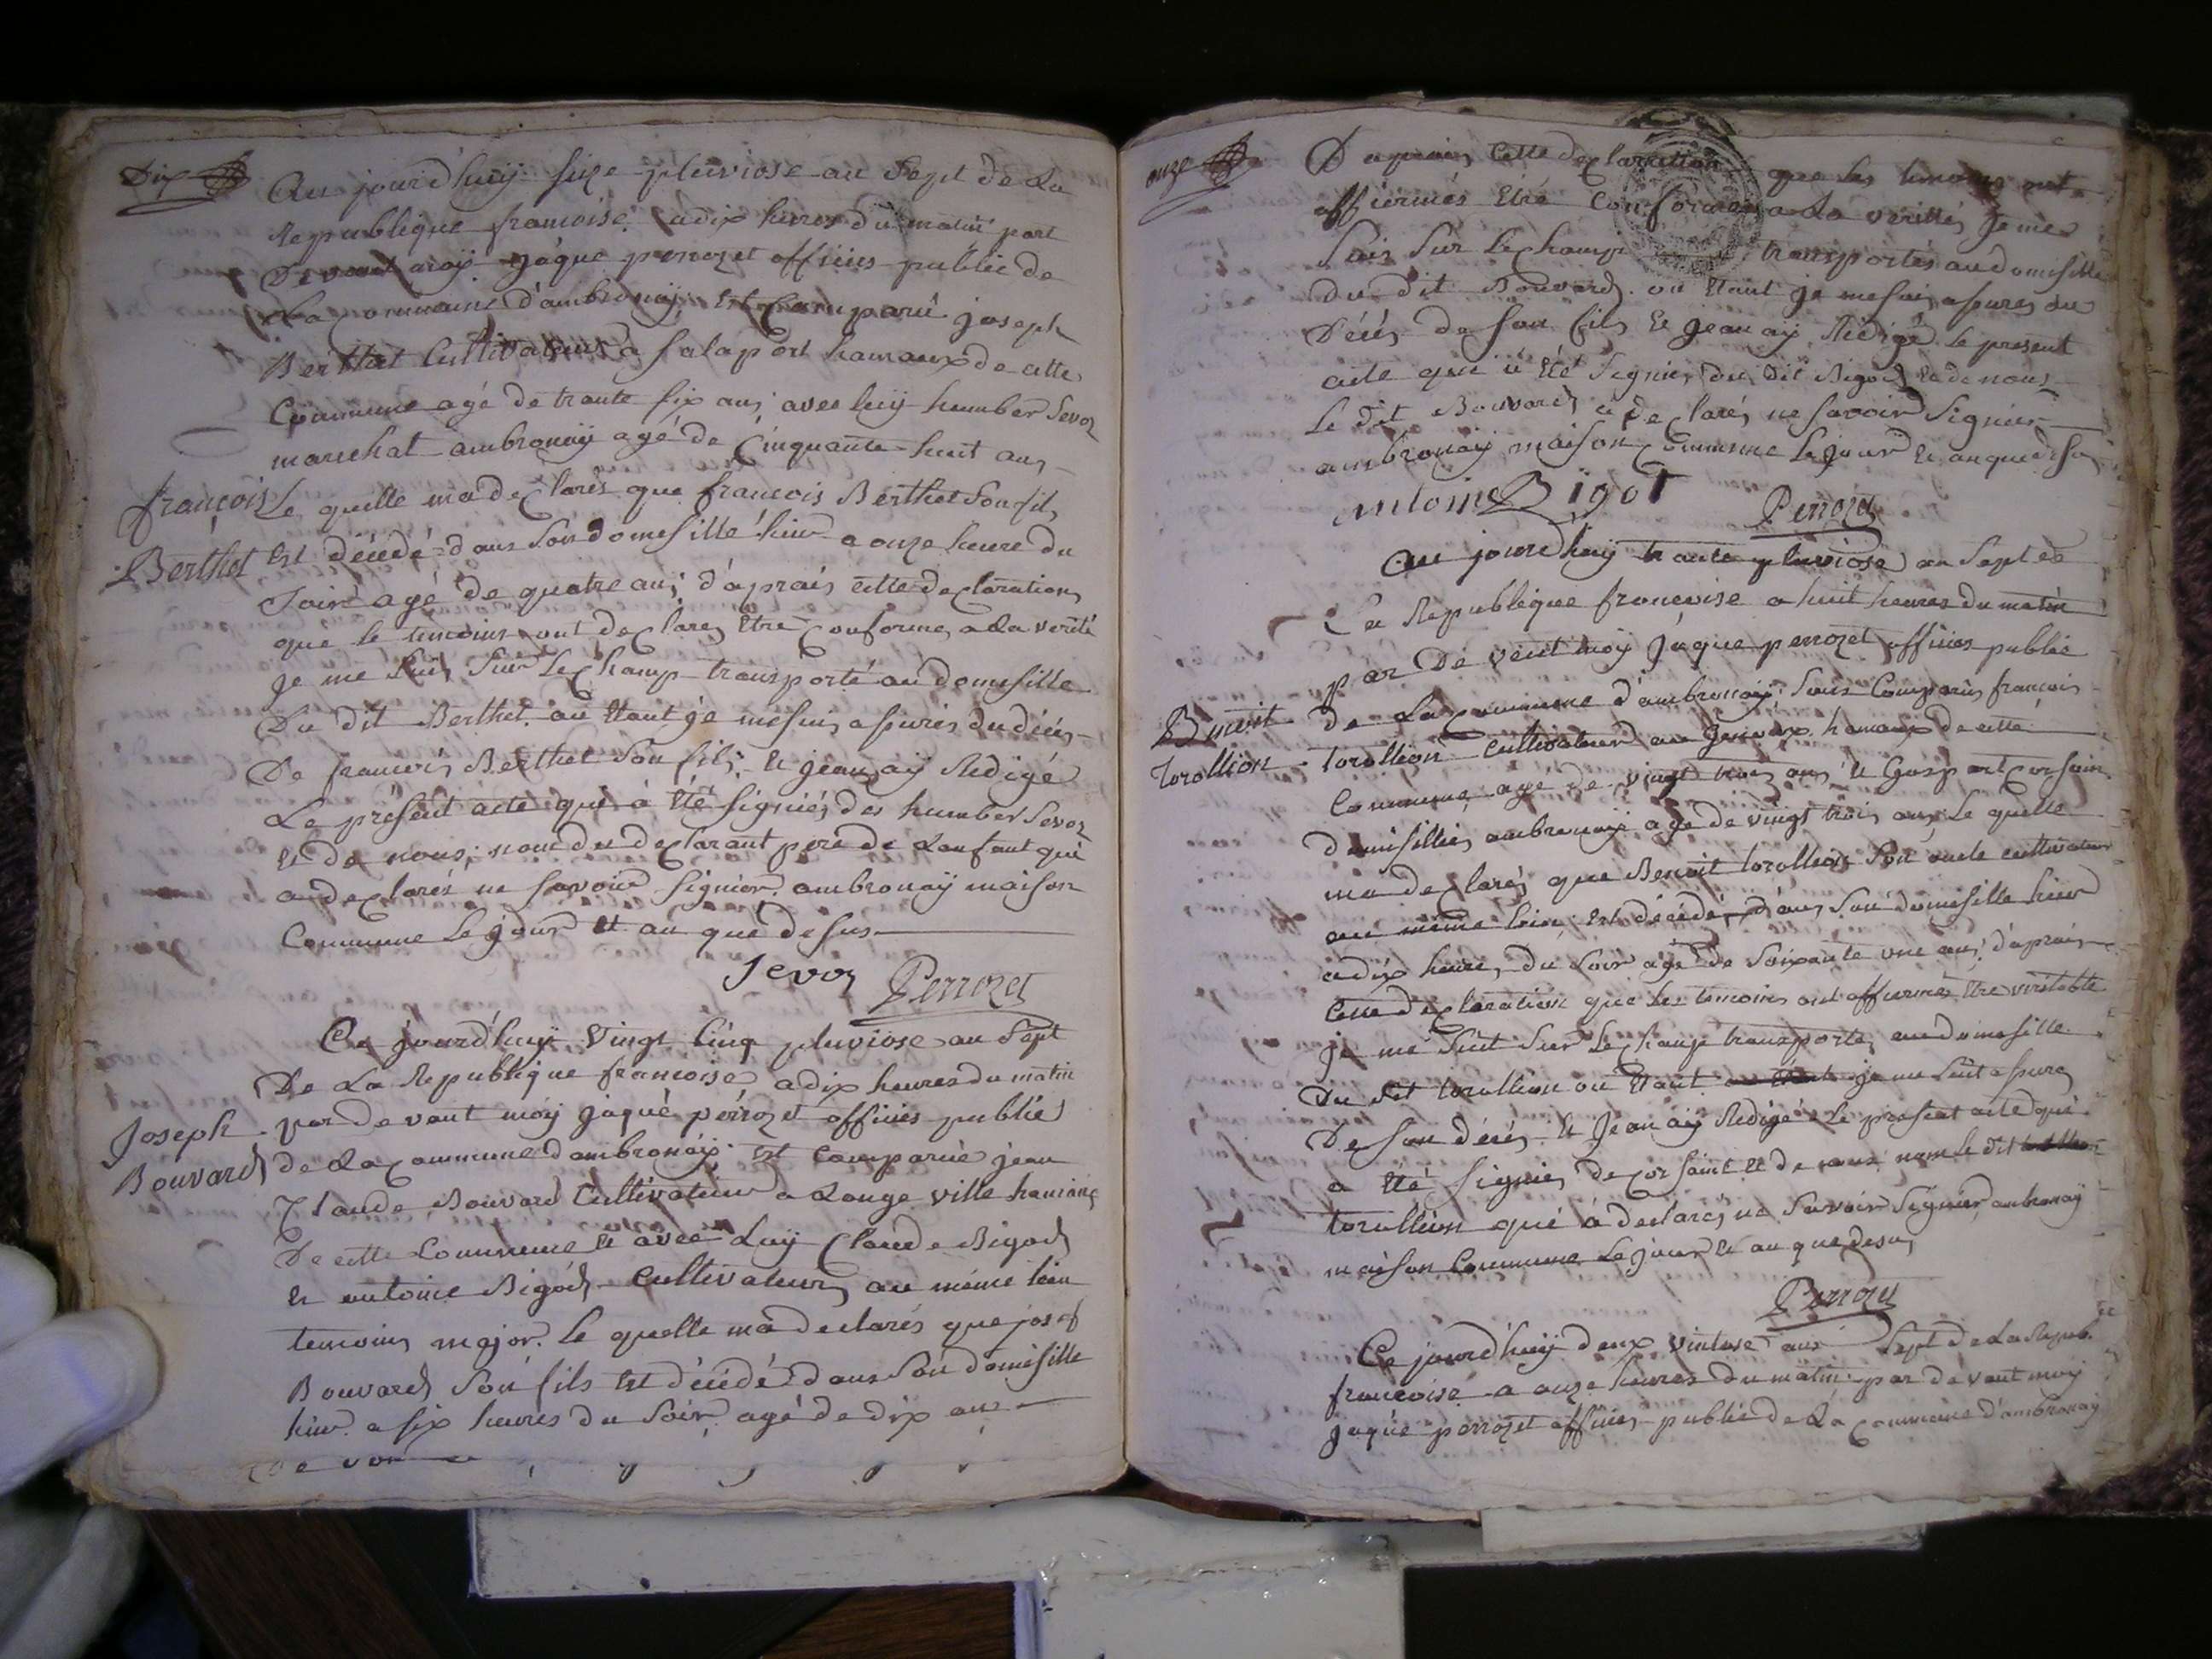 Dix
Au jourdhuÿ seize pluviose an Sept de La
Republique francoise. adix heures du matin part
Devant moÿ jâque perrozet officies public de
La Commune d'ambronaÿ. est Comparu joseph
Berthet Cultivateur a Salaport hamaux de cette
Commune agé de trante six ans, avec luÿ humber Sevoz
marechat ambronaÿ agé de Cinquante huit ans
françois Le quelle ma declarés que francois Berthet Son fils
Berthet est décédé dans Son domesille hier a onze heure du
Soire agé de quatre ans, d'aprais cette declaration
que le temoins ont declares être Conforme a La verité
je me suis Sur Le Champ transporté au domesille
Du dit Berthet. ou Etant je me suis asurés du décés
De francois Berthet Son fils, Et jean aÿ Redigé
Le présent acte qui à Eté signiés des humber Sevoz
Et de nous, nom du declarant pere de Lanfant qui
au declarés ne Savoir Signier. ambronaÿ maison
Commune Le jour Et an que desus
Sevoz Perrozet
Ce jourd'huÿ Vingt Cinq pluviose an Sept
De La Republique francoise adix heures du matin
Joseph par devant moÿ jaque perrozet officies publié
Bouvard de La Commune dambronaÿ. est Comparué jean
Claude Bouvard Cultivateur a Longe ville hamaux
De cette Commune Et avec Luÿ Claude Bigod
Et antoine Bigod Cultivateur au même lieu
temoins major. Le quelle ma declarés que josef
Bouvard Son fils Est décédé dans Son domesille
hier a six heures du Soir agé de dix ans
onze
D aprais Cette declaration que Les temoins ont
affiermés Etre Conforme a La verittés je me
Suis Sur Le Champ transportés au domesille
du dit Bouvard. ou Etant je me suis asures du
Décés de Son fils Et jean aÿ Redigé le present
acte qui à Eté Signies du dit Bigod Et de nous
Le dit Bouvard a declarés ne Savoir Signier
ambronaÿ maison Commune Le jour Et an que desus
antoine Bigot
Perrozet
Au jourdhuÿ trante pluviose an Sept de
La Republique francoise a huit heures du matin
par De vent moÿ Jaque perrozet officies publié
Benoit de La Commune d'ambronaÿ, Sons Comparus francois
Torollion torollion Cultivateur au genoux hamaux de cette
Commune agé de vingt trois ans Et Gaspart Corsain
domisillies ambronaÿ agé de vingt trois ans, Le quelle
ma declarés que Benoit torollion Son oncle cultivateur
au même lieu Est décédé dans Son domesille hier
a dix heures du Soir agé de Soixante une ans, d'aprais
Cette declaration que Les temoins ont affiermés Etre viritable
je me Suit Sur Le Champ transportés au domesille
Du dit torollion ou Etant je me Suit asures
De Son décés, Et Jean aÿ Redigé Le present acte qui
a Eté Signies de Corsaint Et de nous nom le dit
torollion qui à declarés ne Savoir Signier ambronaÿ
maison Commune Le jour Et an que desus
Perrozet
Ce jourd'huÿ deux vintose ans Sept de La Repub.
francoise a onze heures du matin par dé vant moÿ
Jaque perrozet officies publié de La Commune d'ambronaÿ